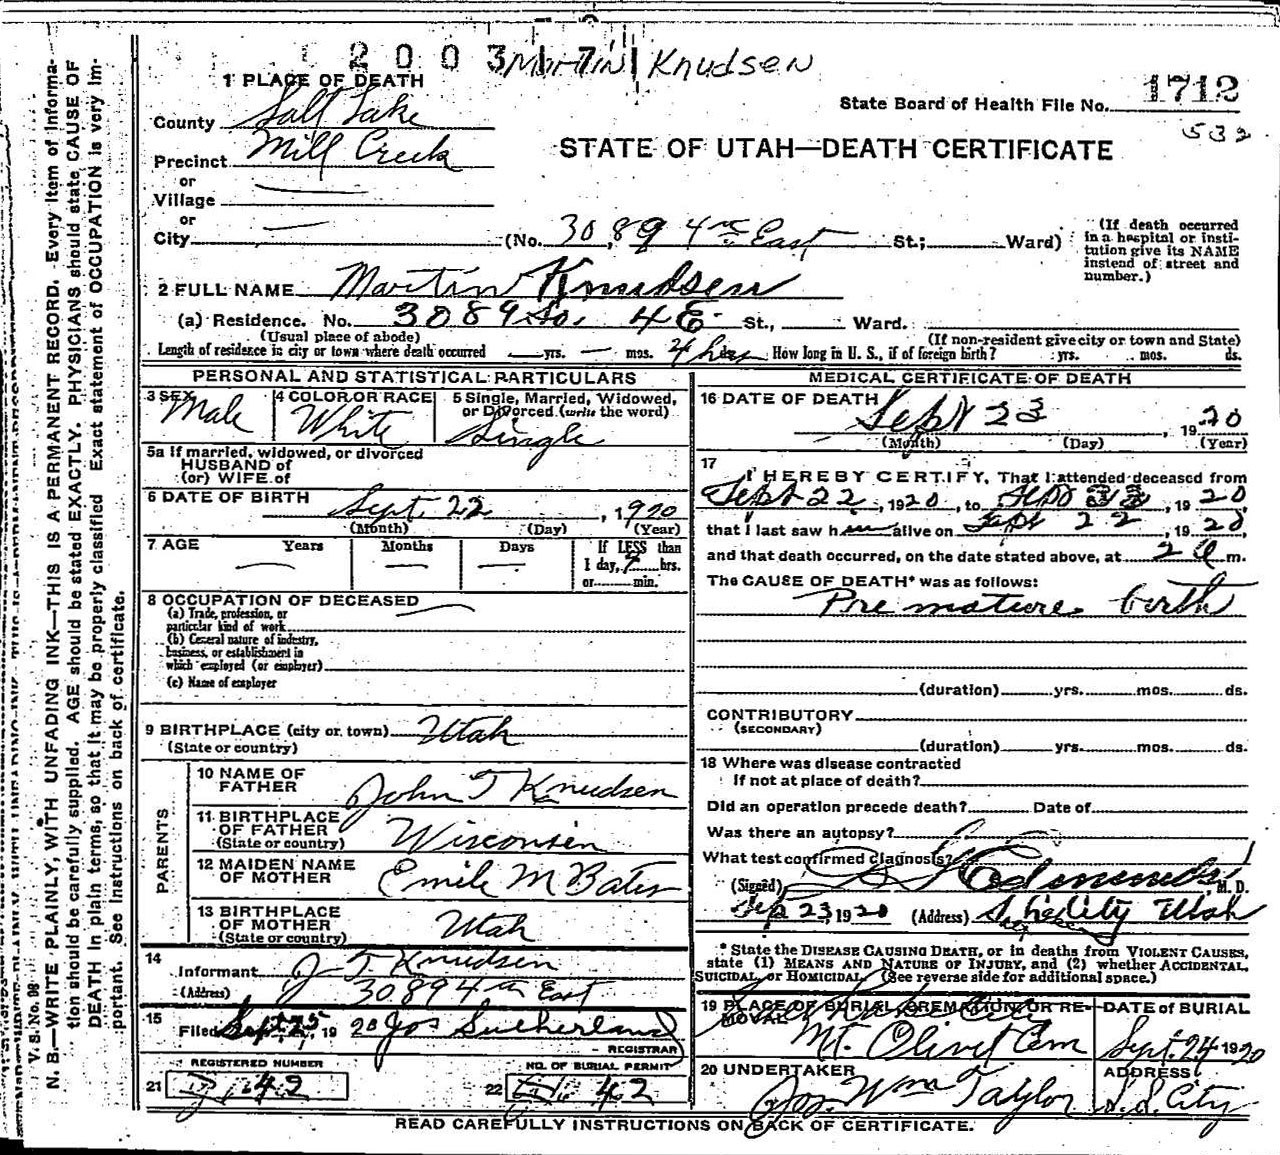 2003171 Martin Knudsen
1 PLACE OF DEATH
State Board of Health File No. 1712
532
County Salt Lake
STATE OF UTAH—DEATH CERTIFICATE
Precinct Mill Creek
or
Village
or
City (No. 3089 4th East St.; Ward)
(If death occurred in a hospital or institution give its NAME instead of street and number.)
2 FULL NAME Martin Knudsen
(a) Residence. No. 3089 So. 4 E. St., Ward.
(Usual place of abode) (If non-resident give city or town and State)
Length of residence in city or town where death occurred yrs. — mos. hrs How long in U. S., if of foreign birth? yrs. mos. ds.
PERSONAL AND STATISTICAL PARTICULARS
3 SEX Male
4 COLOR OR RACE White
5 Single, Married, Widowed, or Divorced (write the word) Single
5a If married, widowed, or divorced
HUSBAND of
(or) WIFE of
6 DATE OF BIRTH Sept. 22, 1920
(Month) (Day) (Year)
7 AGE Years Months Days If LESS than
1 day, hrs.
or min.
8 OCCUPATION OF DECEASED
(a) Trade, profession, or
particular kind of work
(b) General nature of industry,
business, or establishment in
which employed (or employer)
(c) Name of employer
9 BIRTHPLACE (city or town) Utah
(State or country)
PARENTS
10 NAME OF FATHER John T Knudsen
11 BIRTHPLACE OF FATHER Wisconsin
(State or country)
12 MAIDEN NAME OF MOTHER Emile M Bates
13 BIRTHPLACE OF MOTHER Utah
(State or country)
14
Informant J T Knudsen
(Address) 3089 4th East
15
Filed Sept 25, 1920 Jos Sutherland
REGISTRAR
REGISTERED NUMBER
NO. OF BURIAL PERMIT
21 42
22 42
MEDICAL CERTIFICATE OF DEATH
16 DATE OF DEATH Sept 23, 1920
(Month) (Day) (Year)
17
I HEREBY CERTIFY, That I attended deceased from
Sept 22, 1920, to Sept 23, 1920
that I last saw him alive on Sept 22, 1920,
and that death occurred, on the date stated above, at 2 a m.
The CAUSE OF DEATH* was as follows:
Premature birth
(duration) yrs. mos. ds.
CONTRIBUTORY
(SECONDARY)
(duration) yrs. mos. ds.
18 Where was disease contracted
If not at place of death?
Did an operation precede death? Date of
Was there an autopsy?
What test confirmed diagnosis?
(Signed) Edmunds M. D.
Sep 23 1920 (Address) City Utah
* State the DISEASE CAUSING DEATH, or in deaths from VIOLENT CAUSES,
state (1) MEANS AND NATURE OF INJURY, and (2) whether ACCIDENTAL,
SUICIDAL, or HOMICIDAL. (See reverse side for additional space.)
19 PLACE OF BURIAL, CREMATION OR REMOVAL
Mt. Olivet Cem
DATE of BURIAL
Sept. 24 1920
20 UNDERTAKER
Jos. Wm Taylor
ADDRESS
S. L. City
READ CAREFULLY INSTRUCTIONS ON BACK OF CERTIFICATE.
V. S. No. 98
N. B.—WRITE PLAINLY, WITH UNFADING INK—THIS IS A PERMANENT RECORD. Every item of informa-
tion should be carefully supplied. AGE should be stated EXACTLY. PHYSICIANS should state CAUSE OF
DEATH in plain terms, so that it may be properly classified. Exact statement of OCCUPATION is very im-
portant. See instructions on back of certificate.